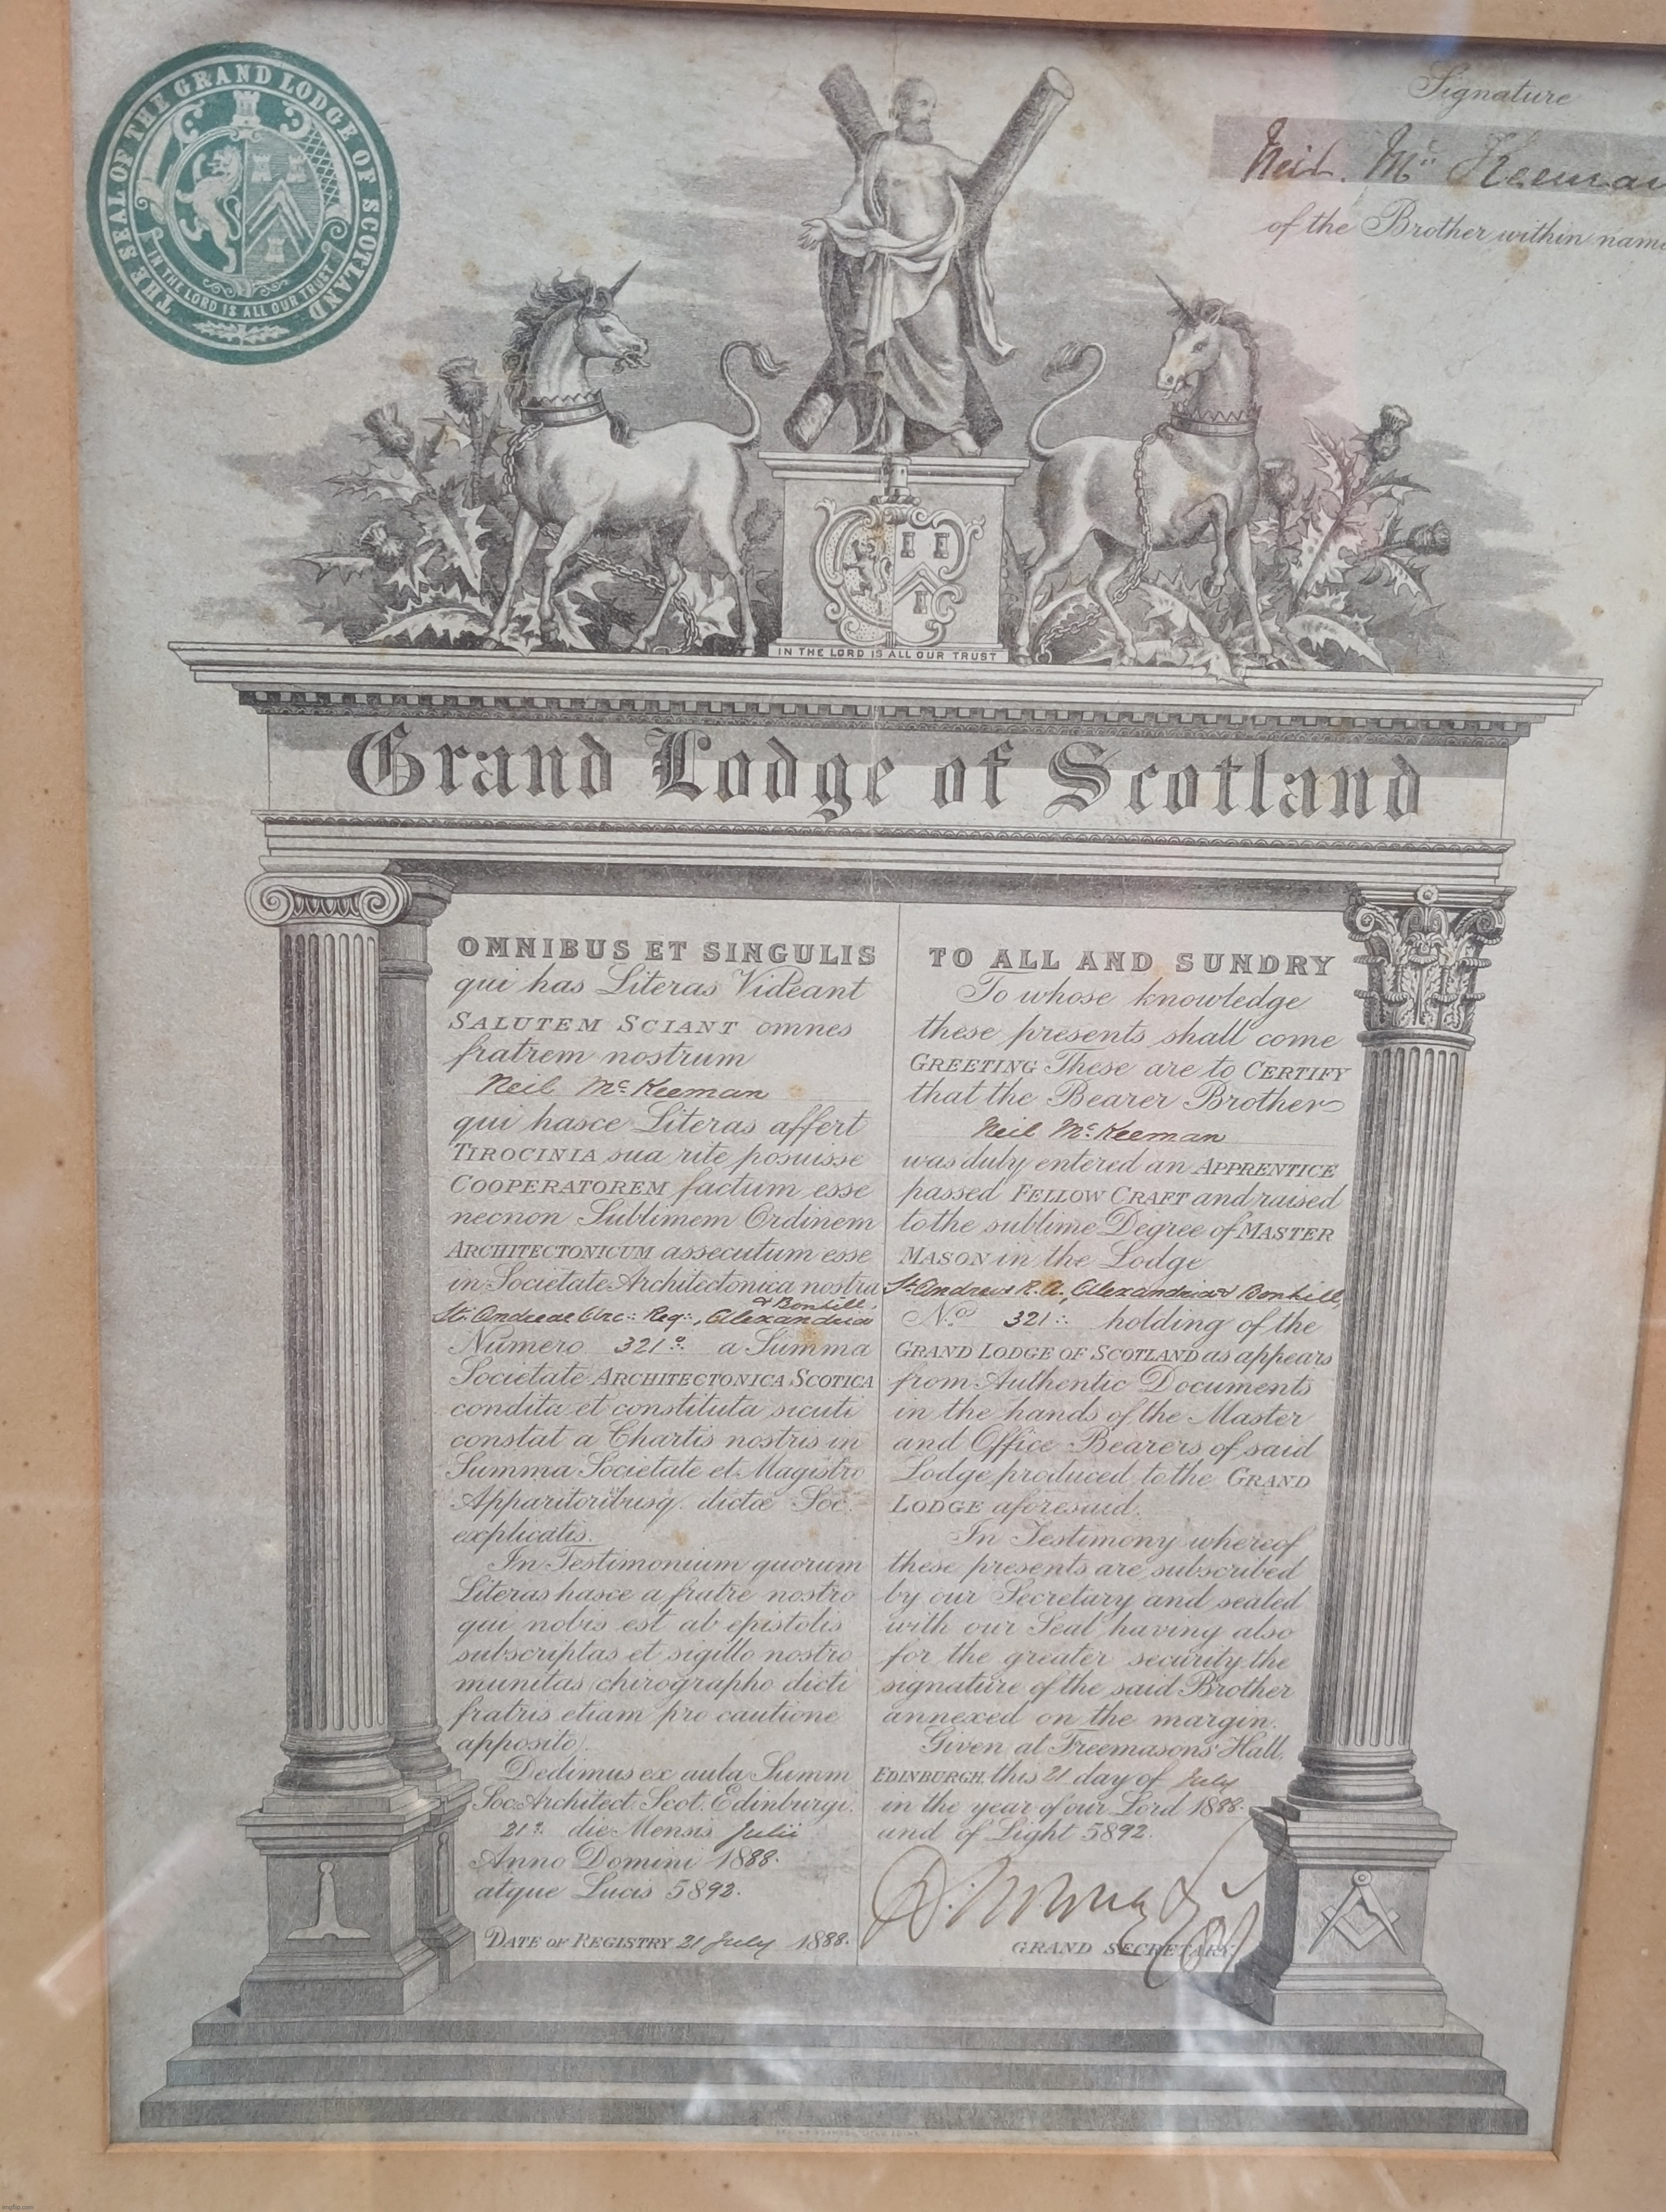 THE SEAL OF THE GRAND LODGE OF SCOTLAND
IN THE LORD IS ALL OUR TRUST
Signature
Neil. Mc Keeman
of the Brother within name
IN THE LORD IS ALL OUR TRUST
Grand Lodge of Scotland
OMNIBUS ET SINGULIS
qui has Literas Videant
SALUTEM SCIANT omnes
fratrem nostrum
Neil Mc Keeman
qui hasce Literas affert
TIROCINIA sua rite posuisse
COOPERATOREM factum esse
necnon Sublimem Ordinem
ARCHITECTONICUM assecutum esse
in Societate Architectonica nostra
& Bonhill,
St. Andreae Arc: Reg:, Alexandria
Numero 321º. a Summa
Societate ARCHITECTONICA SCOTICA
condita et constituta sicuti
constat a Chartis nostris in
Summa Societate et Magistro
Apparitoribusq. dictæ Soc.
explicatis.
In Testimonium quorum
Literas hasce a fratre nostro
qui nobis est ab epistolis
subscriptas et sigillo nostro
munitas (chirographo dicti
fratris etiam pro cautione
apposito).
Dedimus ex aula Summ.
Soc. Architect. Scot. Edinburgi.
21º. die Mensis Julii
Anno Domini 1888.
atque Lucis 5892.
DATE OF REGISTRY 21 July 1888.
TO ALL AND SUNDRY
To whose knowledge
these presents shall come
GREETING These are to CERTIFY
that the Bearer Brother
Neil Mc Keeman
was duly entered an APPRENTICE
passed FELLOW CRAFT and raised
to the sublime Degree of MASTER
MASON in the Lodge
St. Andrew R.A., Alexandria & Bonhill,
No. 321:. holding of the
GRAND LODGE OF SCOTLAND as appears
from Authentic Documents
in the hands of the Master
and Office Bearers of said
Lodge produced to the GRAND
LODGE aforesaid.
In Testimony whereof
these presents are subscribed
by our Secretary and sealed
with our Seal having also
for the greater security the
signature of the said Brother
annexed on the margin.
Given at Freemasons' Hall,
EDINBURGH, this 21 day of July
in the year of our Lord 1888.
and of Light 5892.
GRAND SECRETARY.
imgflip.com